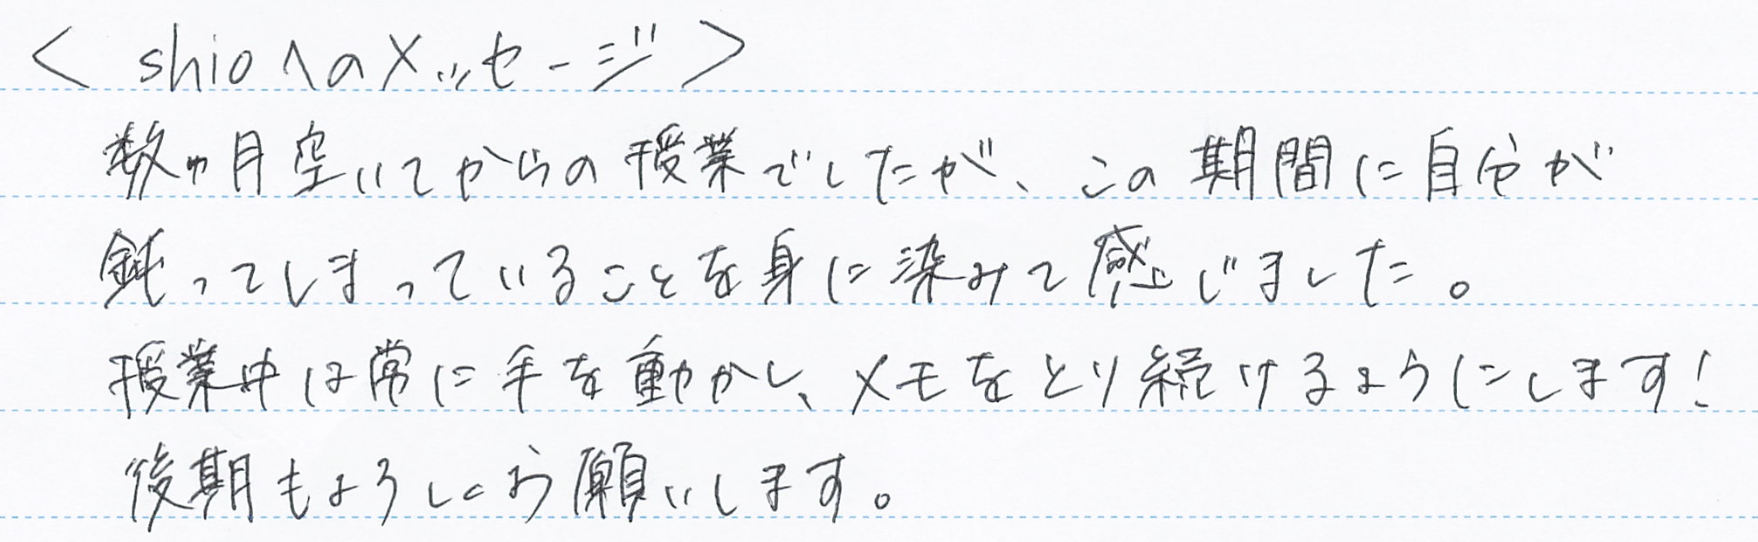 < shioへのメッセージ >
数ヶ月空いてからの授業でしたが、この期間に自分が
鈍ってしまっていることを身に染みて感じました。
授業中は常に手を動かし、メモをとり続けるようにします!
後期もよろしくお願いします。